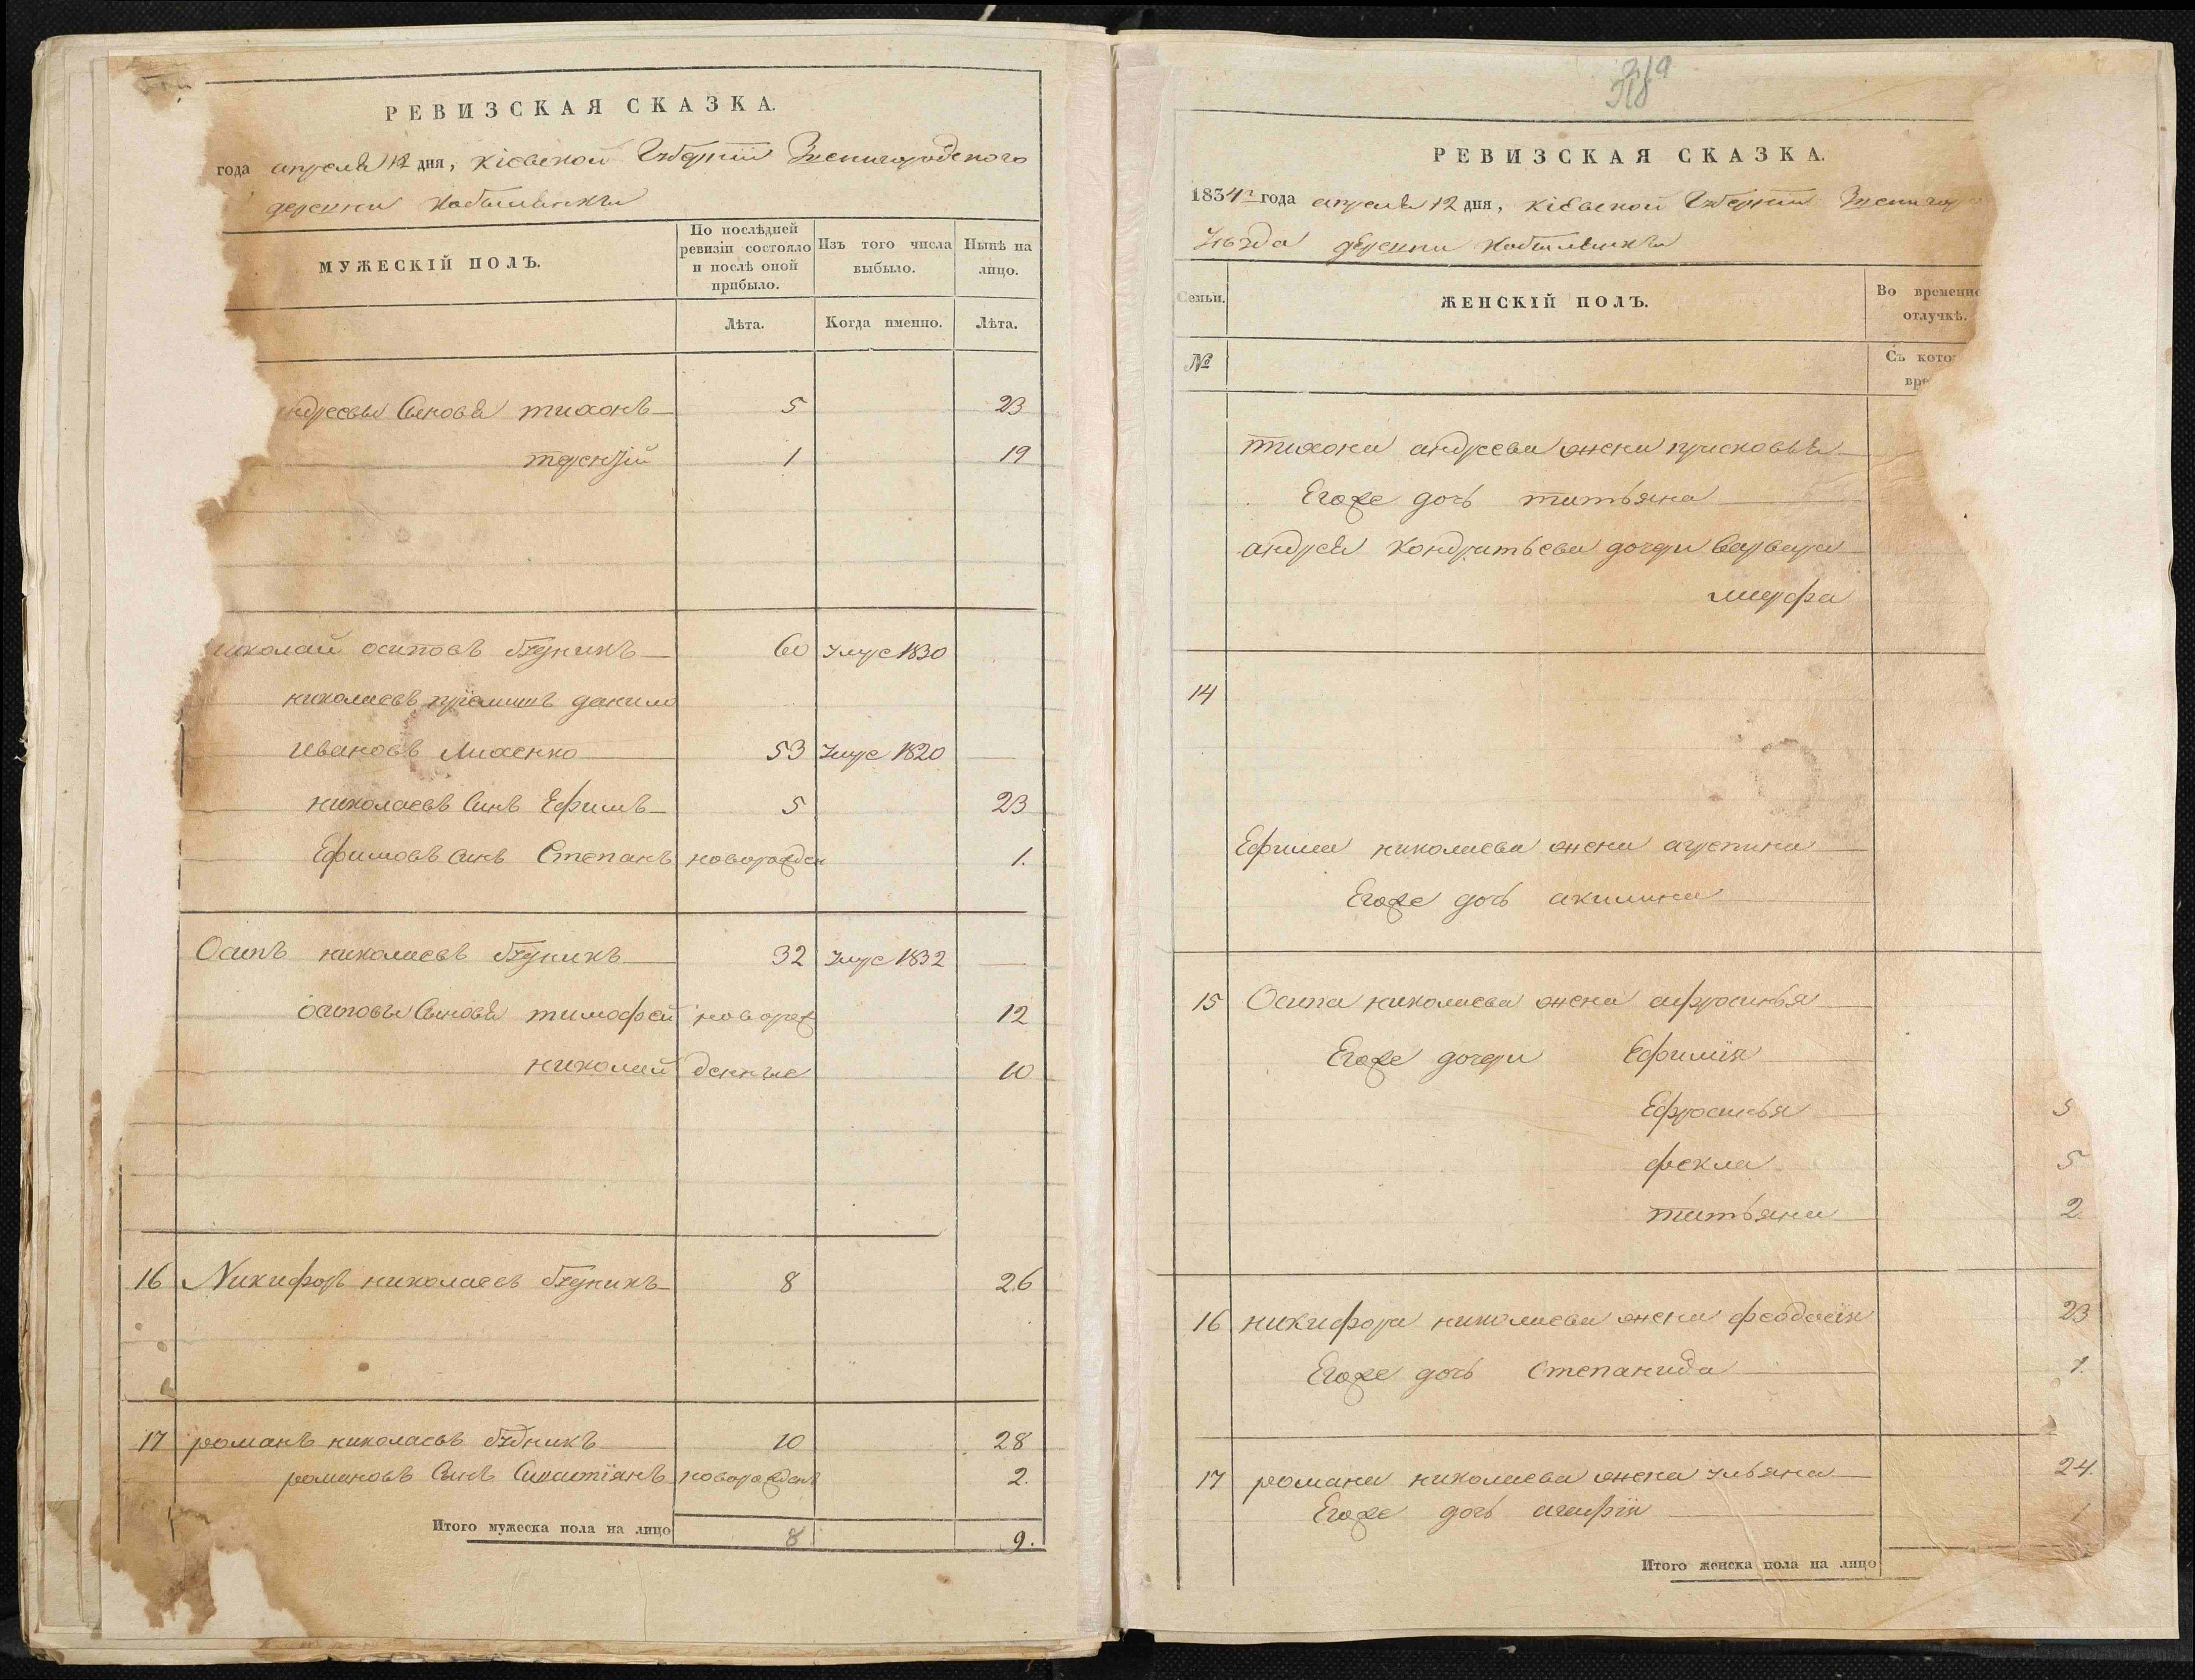 РЕВИЗСКАЯ СКАЗКА.
года апреля 12 дня, Кіевской Губерніи Звенигородского
деревни
МУЖЕСКІЙ ПОЛЪ.
По послѣдней ревизіи состояло и послѣ оной прибыло.
Изъ того числа выбыло.
Нынѣ на лицо.
Лѣта.
Когда именно.
Лѣта.
Сыновья тихонъ 5 23
терентій 1 19
осиповъ будникъ 60 умре 1830
николаевъ пріемишъ данило
Ивановъ Лихенко 53 умре 1820
николаевъ Синъ Ефимъ 5 23
Ефимовъ Синъ Степанъ новорожден 1.
Осипъ николаевъ будникъ 32 умре 1832
осиповы Сыновья тимофей новорож 12
николай денные 10
16 Никифоръ николаевъ будникъ 8 26
17 романъ николаевъ будникъ 10 28
романовъ Синъ новорожденъ 2.
Итого мужеска пола на лицо 8 9.
319
РЕВИЗСКАЯ СКАЗКА.
1834 года апреля 12 дня, Кіевской Губерніи
Уезда деревни
Семьи.
ЖЕНСКІЙ ПОЛЪ.
Во временно
отлучкѣ.
№
Съ кото
вре
тихона андреева жена
Егоже дочь татьяна
андрея кондратьева дочери Варвара
марфа
14
Ефима николаева жена агрепина
Егоже дочь акилина
15 Осипа николаева жена афросинья
Егоже дочери Ефимія
Ефросинья 5
фекла 5
татьяна 2
16 никифора николаева жена феодосія 23
Егоже дочь Степанида 1.
17 романа николаева жена ульяна 24.
Егоже дочь агафія 1
Итого женска пола на лицо